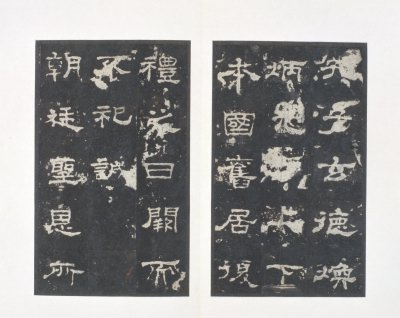 孔子玄德煥
炳光於上下
本國舊居復
禮之日闕而
不祀誠
朝廷聖恩所